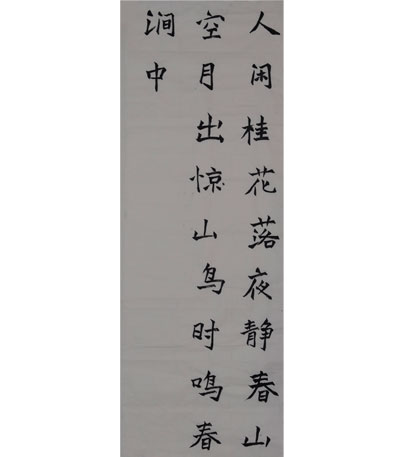 人闲桂花落夜静春山
空月出惊山鸟时鸣春
涧中